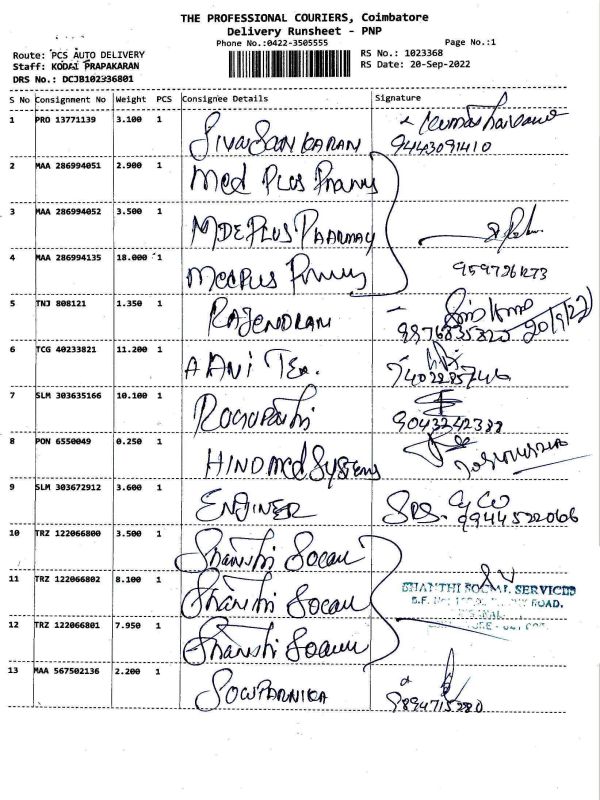 THE PROFESSIONAL COURIERS, Coimbatore
Delivery Runsheet - PNP
Phone No.:0422-3505555
Page No.:1
Route: PCS AUTO DELIVERY
RS No.: 1023368
Staff: KODAI PRAPAKARAN
RS Date: 20-Sep-2022
DRS No.: DCJB102336801
S No Consignment No Weight PCS Consignee Details Signature
1 PRO 13771139 3.100 1 SIVASANKARAN
9443091410
2 MAA 286994051 2.900 1 Med Plus
3 MAA 286994052 3.500 1 MDEPLUS PHARMAY
4 MAA 286994135 18.000 1 Medplus
9597261273
5 TNJ 808121 1.350 1 RAJENDRAN
20/9/22
6 TCG 40233821 11.200 1 AANI TEX.
7402285746
7 SLM 303635166 10.100 1
9043242388
8 PON 6550049 0.250 1 HINDMED SYSTEMS
9 SLM 303672912 3.600 1 ENGINER
9944522066
10 TRZ 122066800 3.500 1 Shanthi Social
11 TRZ 122066802 8.100 1 Shanthi Social
SHANTHI SOCIAL SERVICES
ROAD,
12 TRZ 122066801 7.950 1 Shanthi Social
13 MAA 567502136 2.200 1 SOWPARNIKA
9894715280